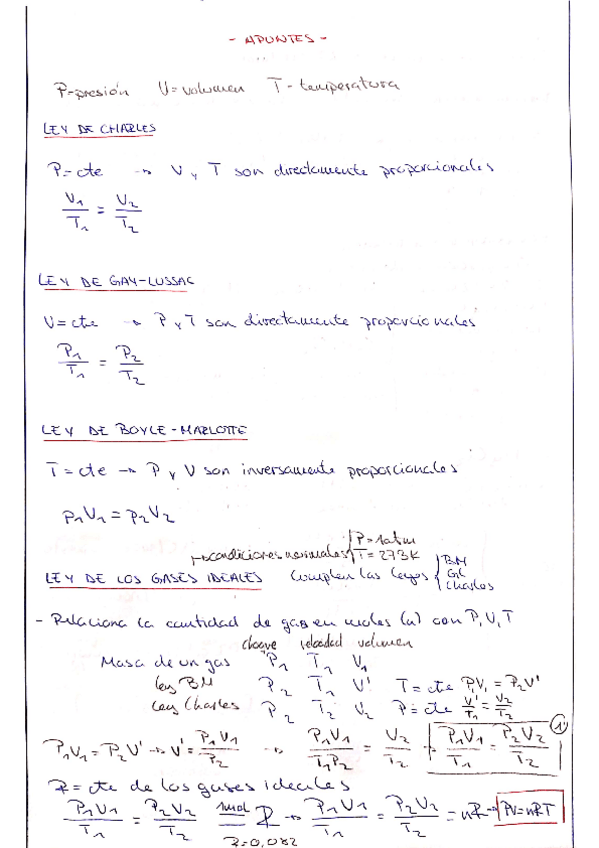 - APUNTES -
P-presión V=volumen T-temperatura
LEY DE CHARLES
P=cte → V y T son directamente proporcionales
V₁/T₁ = V₂/T₂
LEY DE GAY-LUSSAC
V=cte → P y T son directamente proporcionales
P₁/T₁ = P₂/T₂
LEY DE BOYLE-MARLOTTE
T=cte → P y V son inversamente proporcionales
P₁V₁ = P₂V₂
→condiciones normales P=1atm
T=273K
LEY DE LOS GASES IDEALES Cumplen las leyes BM
GL
Charles
- Relaciona la cantidad de gas en moles (n) con P, V, T
volumen
Masa de un gas P₁ T₁ V₁
Ley BM P₂ T₁ V' T=cte P₁V₁ = P₂V'
Ley Charles P₂ T₂ V₂ P=cte V'/T₁ = V₂/T₂
P₁V₁ = P₂V' → V' = P₁V₁/P₂ → P₁V₁/T₁P₂ = V₂/T₂ → P₁V₁/T₁ = P₂V₂/T₂ 1
R=cte de los gases ideales
P₁V₁/T₁ = P₂V₂/T₂ 1mol R → P₁V₁/T₁ = P₂V₂/T₂ = nR → PV=nRT
R=0,082